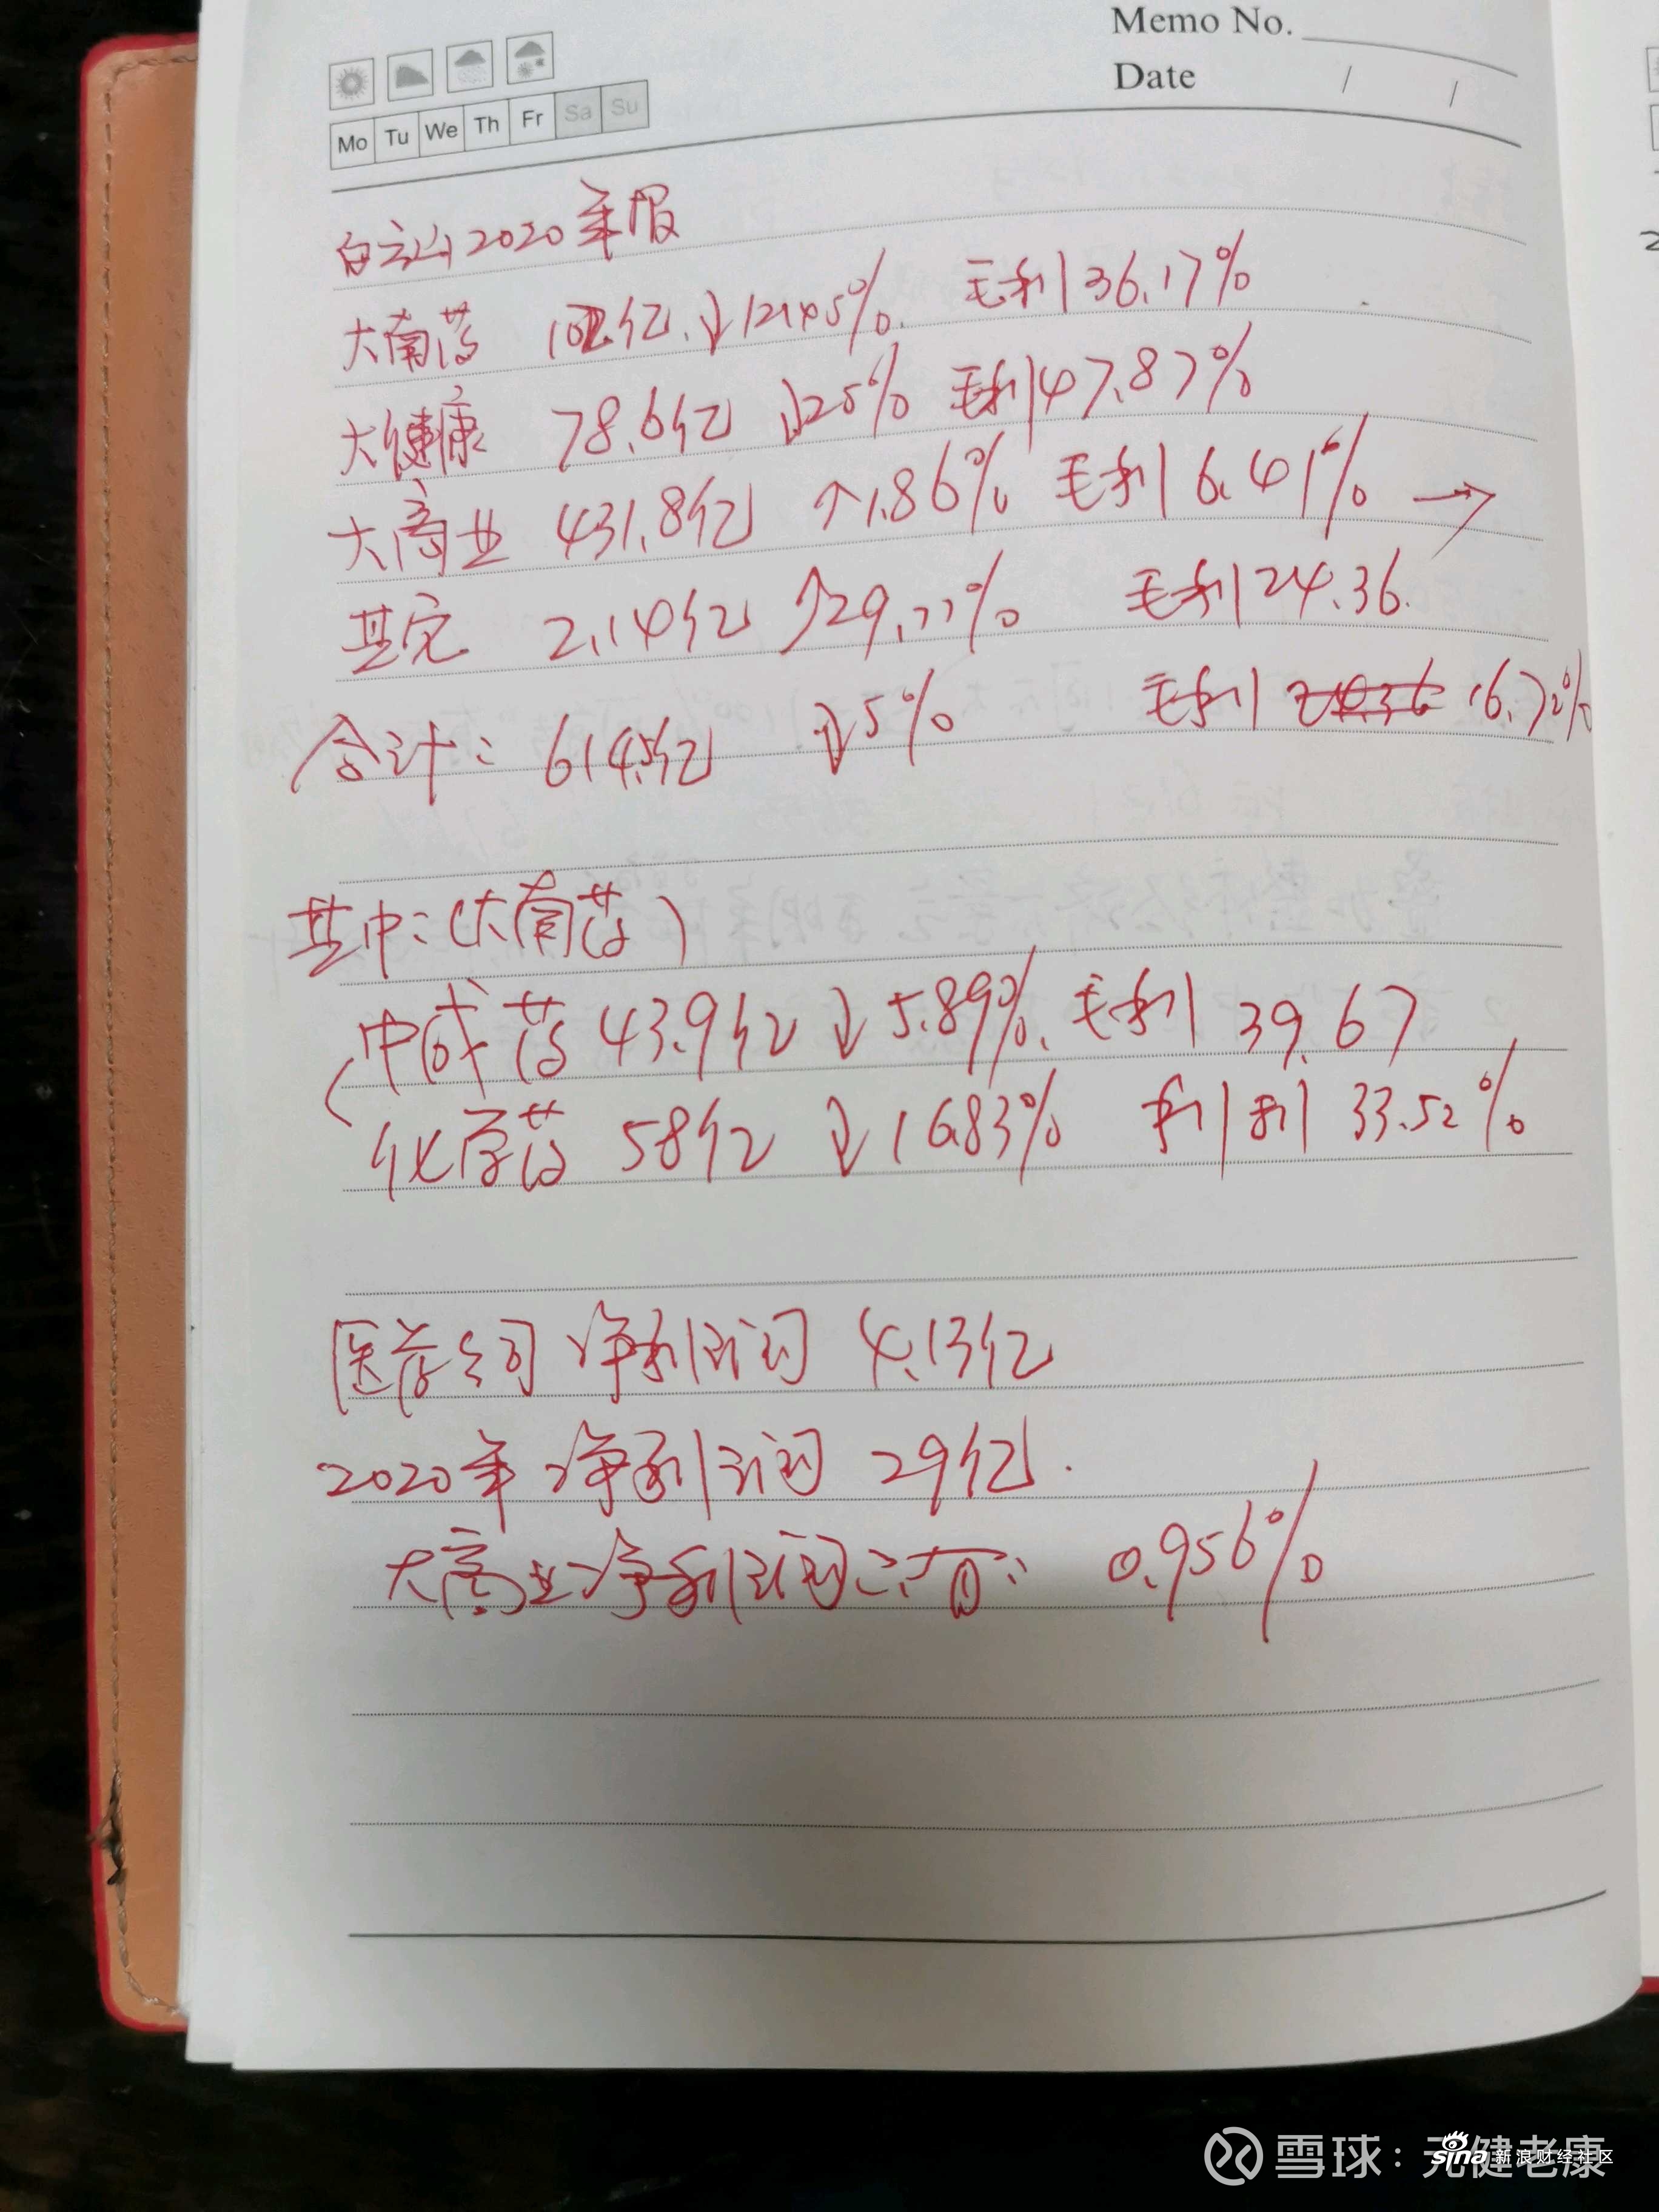 Memo No.
Date / /
Mo Tu We Th Fr Sa Su
白云山2020年报
大南药 102亿 ↓12.45% 毛利36.17%
大健康 78.6亿 ↓25% 毛利47.87%
大商业 431.8亿 ↑1.86% 毛利6.41% →
其它 2.14亿 ↑29.77% 毛利24.36.
合计: 614.5亿 ↓5% 毛利 24.36 16.72%
其中:(大南药)
中成药 43.9亿 ↓5.89%. 毛利 39.67
化学药 58亿 ↓16.83% 毛利 33.52%
医药公司 净利润 4.13亿
2020年 净利润 29亿.
大商业净利润 0.956%
雪球:元健老康
sina 新浪财经社区